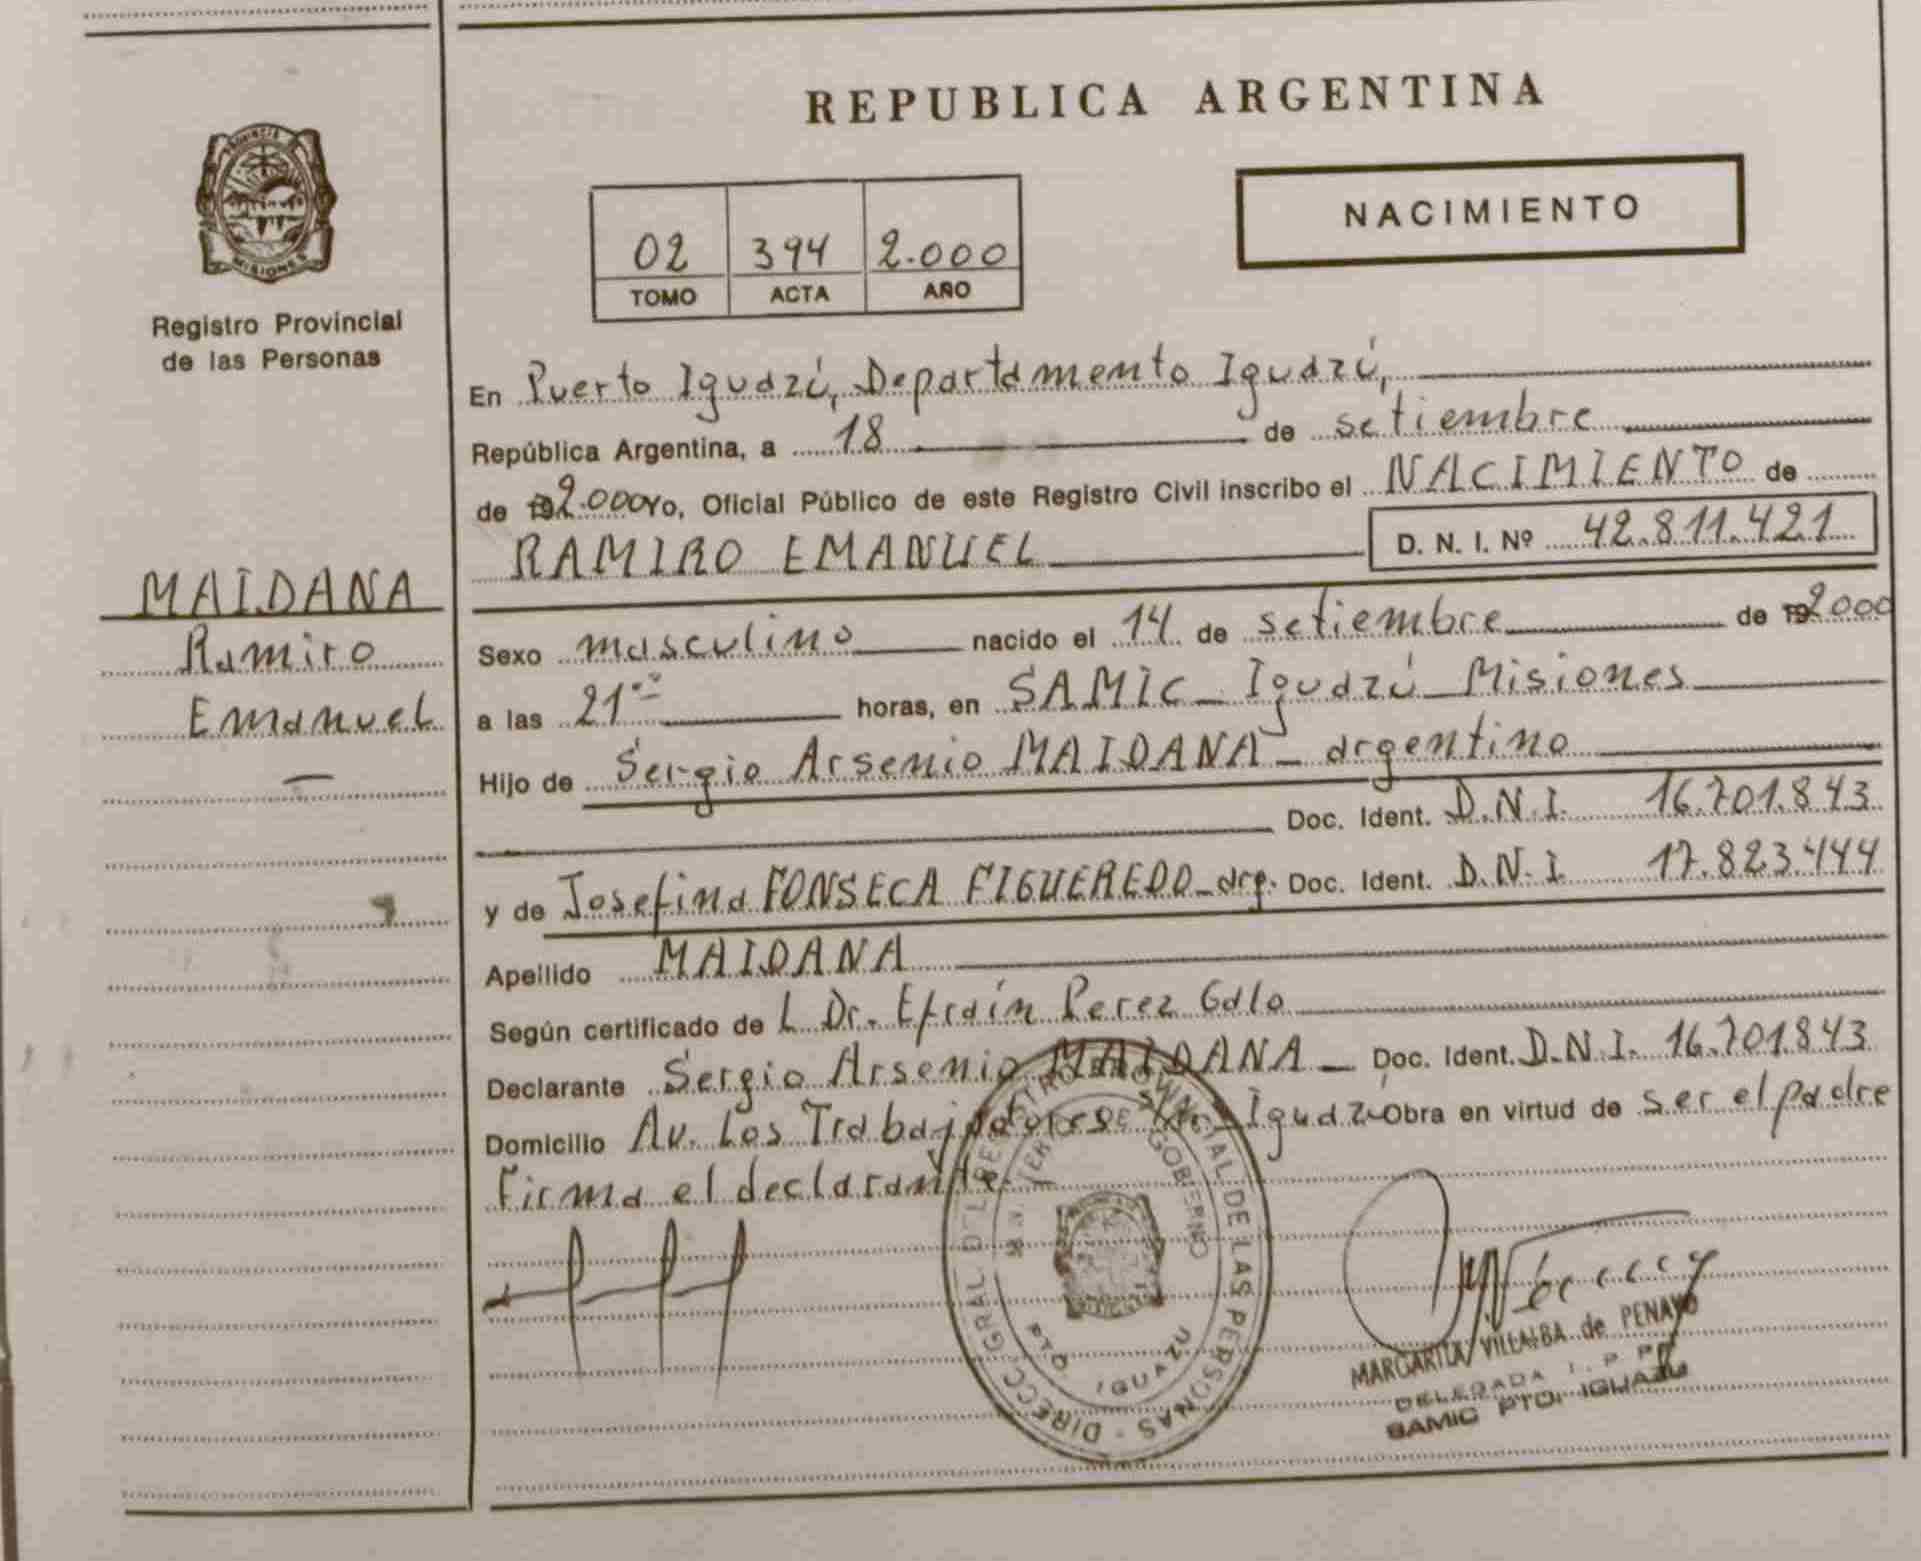 REPUBLICA ARGENTINA
NACIMIENTO
02 394 2.000
TOMO ACTA AÑO
PROVINCIA
MISIONES
Registro Provincial
de las Personas
MAIDANA
Ramiro
Emanuel
En Puerto Iguazú, Departamento Iguazú,
República Argentina, a 18 de setiembre
de 19 2.000 Yo, Oficial Público de este Registro Civil inscribo el NACIMIENTO de
RAMIRO EMANUEL D. N. I. Nº 42.811.421
Sexo masculino nacido el 14 de setiembre de 19 2000
a las 21 horas, en SAMIC - Iguazú - Misiones
Hijo de Sergio Arsenio MAIDANA - argentino
Doc. Ident. D.N.I. 16.701.843
y de Josefina FONSECA FIGUEREDO - arg. Doc. Ident. D.N.I. 17.823.444
Apellido MAIDANA
Según certificado de L Dr. Efraín Perez Galo
Declarante Sergio Arsenio MAIDANA - Doc. Ident. D.N.I. 16.701.843
Domicilio Av. Los Trabajadores S/Nº Iguazú Obra en virtud de ser el padre
Firma el declarante.
DIRECC. GRAL. DEL REGISTRO PROVINCIAL DE LAS PERSONAS
DE GOBIERNO
IGUAZU
MARGARITA VILLALBA de PENAYO
DELEGADA
SAMIC PTO. IGUAZU